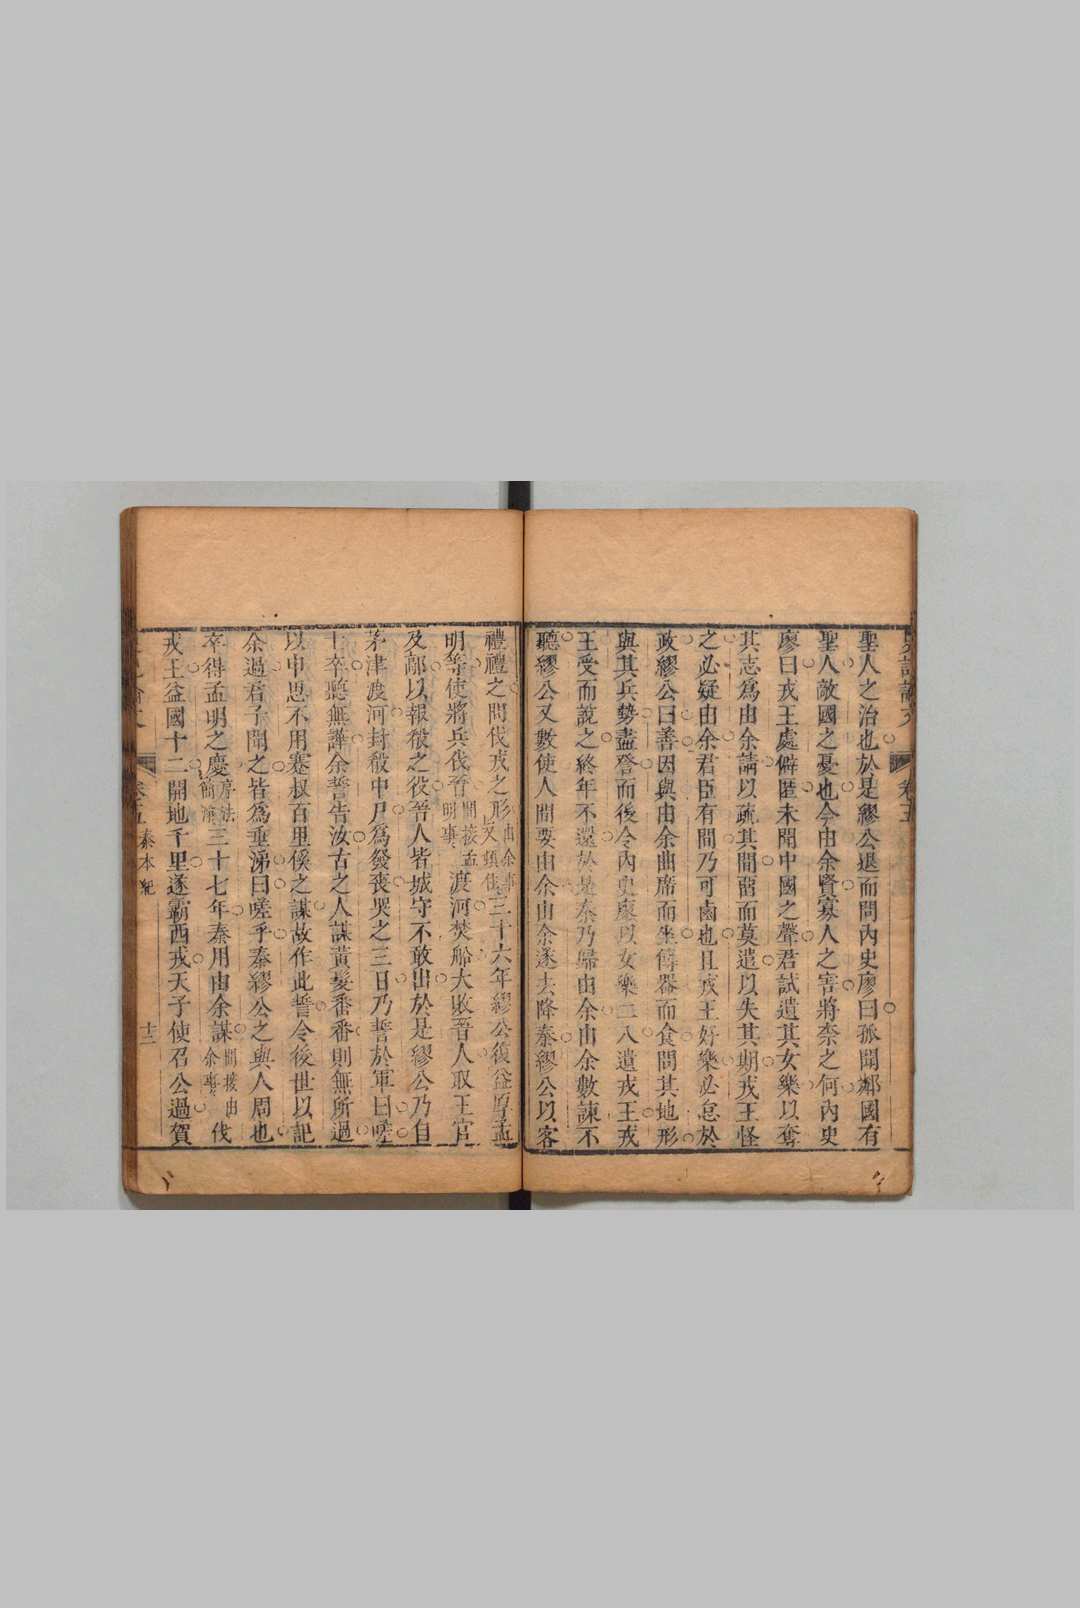 聖人之治也於是繆公退而問內史廖曰孤聞鄰國有
聖人敵國之憂也今由余賢寡人之害將柰之何內史
廖曰戎王處僻匿未聞中國之聲君試遺其女樂以奪
其志爲由余請以疏其間畱而莫遣以失其期戎王怪
之必疑由余君臣有間乃可虜也且戎王好樂必怠於
政繆公曰善因與由余曲席而坐傳器而食問其地形
與其兵勢盡詧而後令內史廖以女樂二八遺戎王戎
王受而說之終年不還於是秦乃歸由余由余數諫不
聽繆公又數使人間要由余由余遂去降秦繆公以客
禮禮之問伐戎之形由余事又頓住三十六年繆公復益厚孟
明等使將兵伐晉間接孟明事渡河焚船大敗晉人取王官
及鄗以報殽之役晉人皆城守不敢出於是繆公乃自
茅津渡河封殽中尸爲發喪哭之三日乃誓於軍曰嗟
士卒聽無譁余誓告汝古之人謀黃髮番番則無所過
以申思不用蹇叔百里傒之謀故作此誓令後世以記
余過君子聞之皆爲垂涕曰嗟乎秦繆公之與人周也
卒得孟明之慶序法簡淨三十七年秦用由余謀間接由余事伐
戎王益國十二開地千里遂霸西戎天子使召公過賀
卷五 秦本紀 十三